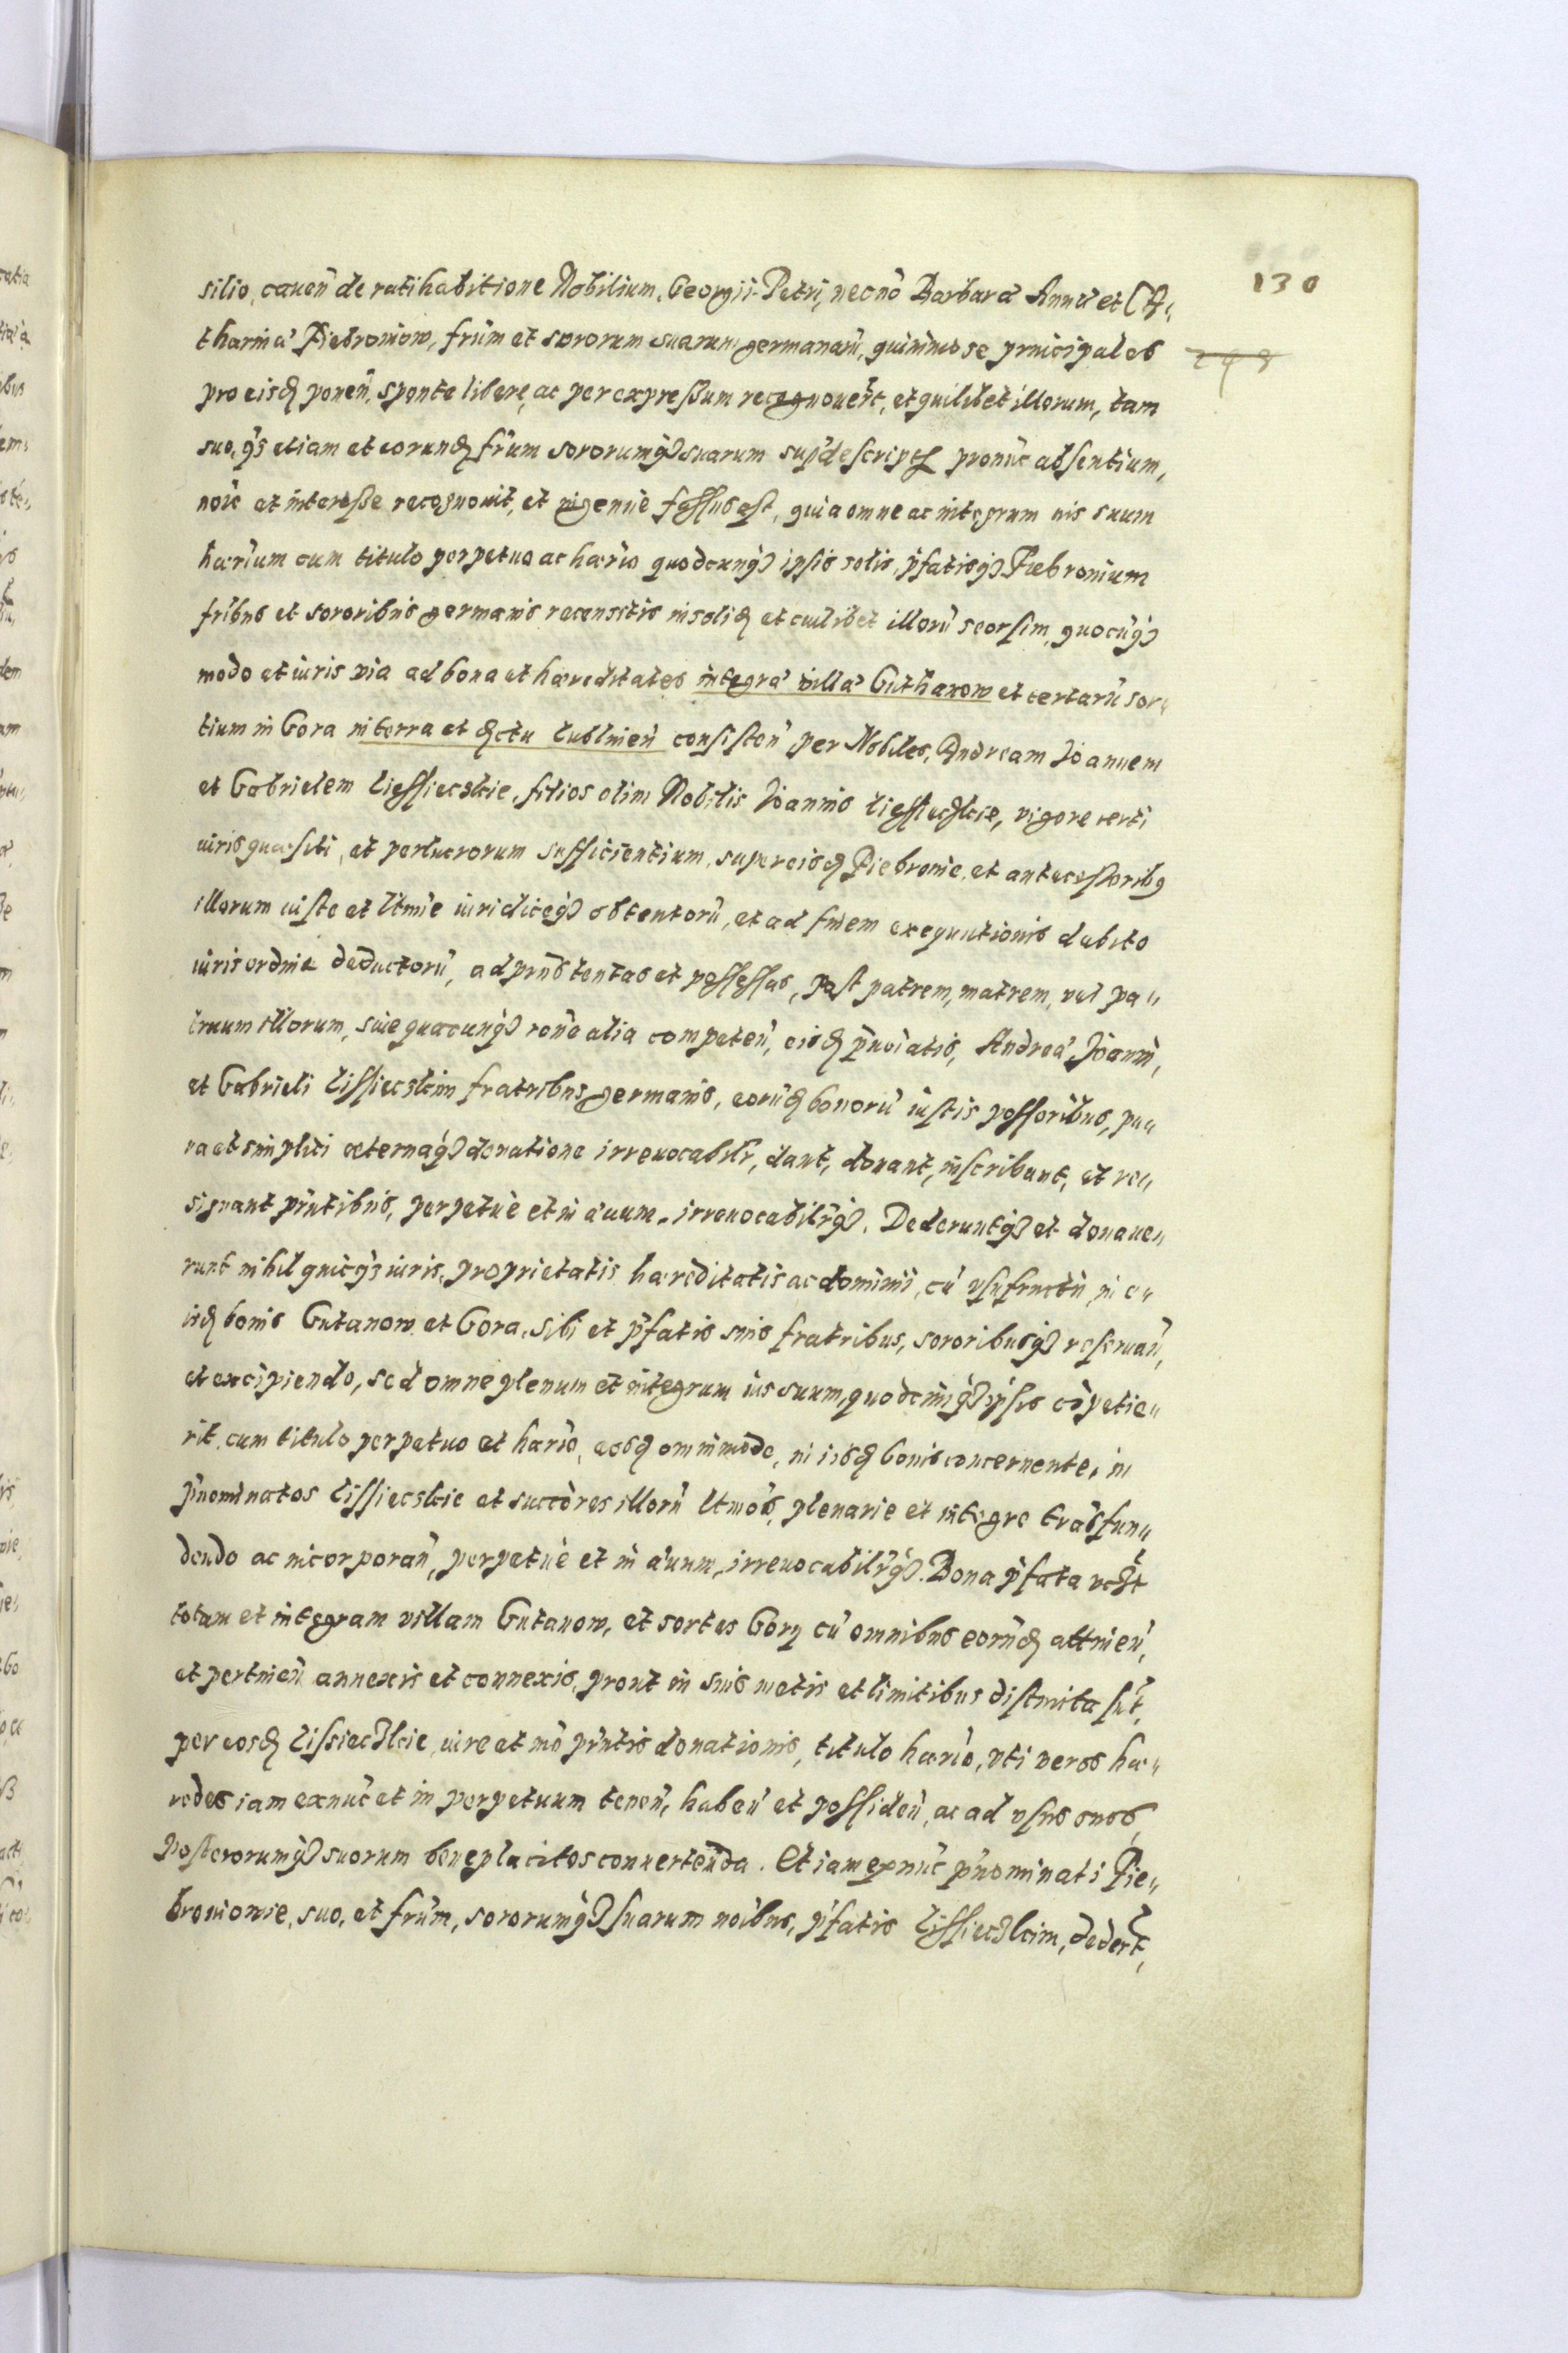 130
silio, cauen̄ de ratihabitione Nobilium, Georgii Petri, necnō Barbaræ Annæ et Ca„
tharinæ Piebroniow, frūm et sororum suarum germanarū, quinimo se principales
298
pro eisdꝫ ponen̄, sponte libere, ac per expressum recognouer̄t, et quilibet illorum, tam
suo, qꝫ etiam et eorundꝫ frūm sororumqꝫ suarum sup̄descript pronūc absentium,
noīe et interesse recognouit, et ingenue fassus est, quia omne ac integrum ius suum
hærīum cum titulo perpetuo ac hærīo quodcunqꝫ ipsis solis, p̄fatisqꝫ Piebronium
frībus et sororibus germanis recensitis insolidꝫ et cuilibet illorū seorsim, quocūqꝫ
modo et iuris via ad bona et hæreditates integræ villæ Guthanow et certarū sor„
tium in Gora in terra et dꝫctu Lublinen̄ consisten̄ per Nobiles, Andream Joannem
et Gabrielem Lissiecskie, filios olim Nobilis Joannis Lissiecskie, vigore certi
iuris quæsiti, et perlucrorum sufficientium, super eisdꝫ Piebronie, et antecessoribꝫ
illorum iuste et ltm̄e iuridiceqꝫ obtentorū, et ad finem exequutionis debito
iuris ordine deductorū, ad prn̄s tentas et possessas, post patrem, matrem, vel pa„
truum illorum, siue quacunqꝫ ronē alia competen̄, eisdꝫ p̄noīatis, Andreæ, Joanni,
et Gabrieli Lissiecskim fratribus germanis, eorūdꝫ bonorū iustis possoribus, pu„
ra et simplici æternaqꝫ donatione irreuocabilr̄, dant, donant, inscribunt, et re„
signant prn̄tibus, perpetuè et in æuum, irreuocabilr̄qꝫ. Dederuntqꝫ et donaue„
runt nihil quicqꝫ iuris, proprietatis hæreditatis ac dominii, cū vsufructu, in e„
isdꝫ bonis Gutanow et Gora, sibi et p̄fatis suis fratribus, sororibusqꝫ reseruan̄,
et excipiendo, sed omne plenum et integrum ius suum, quodcūqꝫ ipsis cōpetie„
rit, cum titulo perpetuo et hærīo, eosdꝫ omnimode, in iisdꝫ bonis concernente, in
p̄nominatos Lissiecskie et succōres illorū ltmōs, plenarie et integre trāsfun„
dendo ac incorporan̄, perpetuè et in æuum, irreuocabilr̄qꝫ. Bona p̄fata vcꝫt
totam et integram villam Gutanow, et sortes Gory cū omnibus eorūdꝫ attinen̄,
et pertinen̄ annexis et connexis, prout in suis metis et limitibus distincta sūt,
per eosdꝫ Lissiecskie, iure et mō prn̄tis donationis, titulo hærīo, vti veros hæ„
redes iam exnūc et in perpetuum tenen̄, haben̄ et possiden̄, ac ad vsus suos,
posterorumqꝫ suorum beneplacitos conuertenda. Et iam exnūc p̄nominati Pie„
bronionie, suo, et frūm, sororumqꝫ suarum noībus, p̄fatis Lissiecskim, deder̄t,